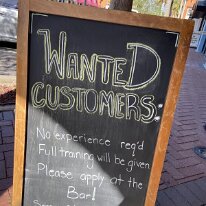 WANTED
CUSTOMERS:
No experience req'd
Full training will be given
Please apply at the
Bar!